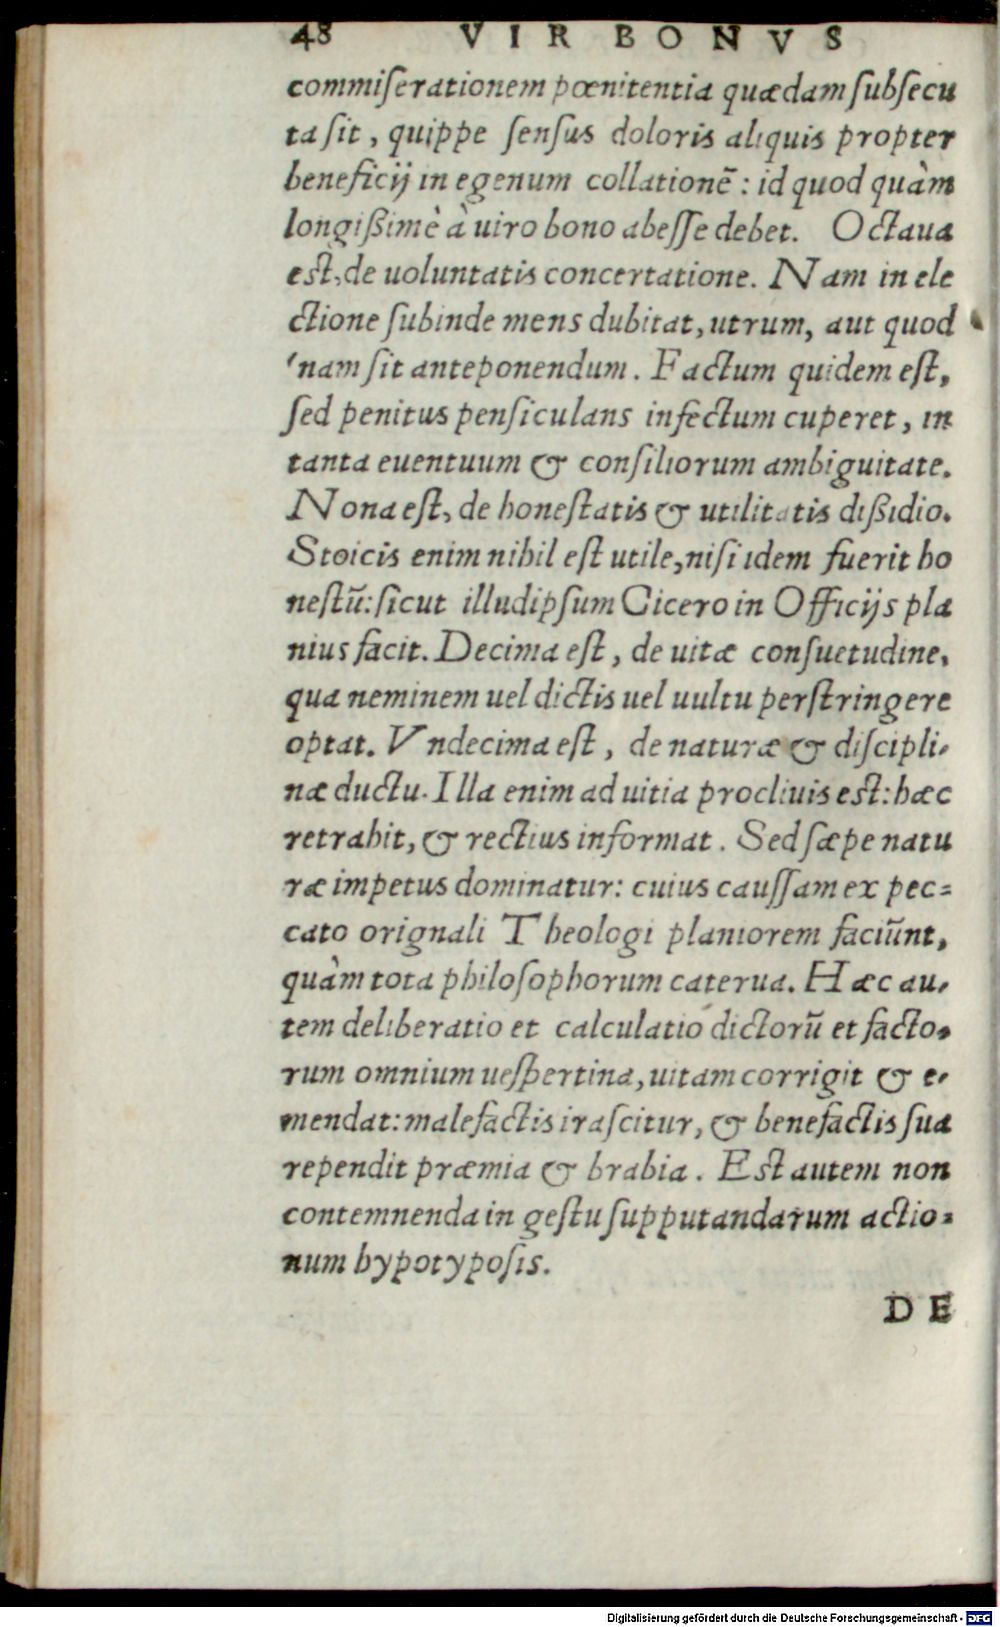 48 VIR BONVS
commiſerationem pœnitentia quædam ſubſecu
ta ſit, quippe ſenſus doloris aliquis propter
beneficij in egenum collationē: id quod quàm
longißimè à uiro bono abeſſe debet. Octaua
eſt, de uoluntatis concertatione. Nam in ele
ctione ſubinde mens dubitat, utrum, aut quod
nam ſit anteponendum. Factum quidem eſt,
ſed penitus penſiculans infectum cuperet, in
tanta euentuum & conſiliorum ambiguitate.
Nona eſt, de honeſtatis & utilitatis dißidio.
Stoicis enim nihil eſt utile, niſi idem fuerit ho
neſtū: ſicut illud ipſum Cicero in Officijs pla
nius facit. Decima eſt, de uitæ conſuetudine,
qua neminem uel dictis uel uultu perſtringere
optat. Vndecima eſt, de naturæ & diſcipli-
næ ductu. Illa enim ad uitia procliuis eſt: hæc
retrahit, & rectius informat. Sed ſæpe natu
ræ impetus dominatur: cuius cauſſam ex pec=
cato orignali Theologi planiorem faciūnt,
quàm tota philoſophorum caterua. Hæc au-
tem deliberatio et calculatio dictorū et facto-
rum omnium ueſpertina, uitam corrigit & e-
mendat: malefactis iraſcitur, & benefactis ſua
rependit præmia & brabia. Eſt autem non
contemnenda in geſtu ſupputandarum actio=
num hypotypoſis.
DE
Digitalisierung gefördert durch die Deutsche Forschungsgemeinschaft - DFG